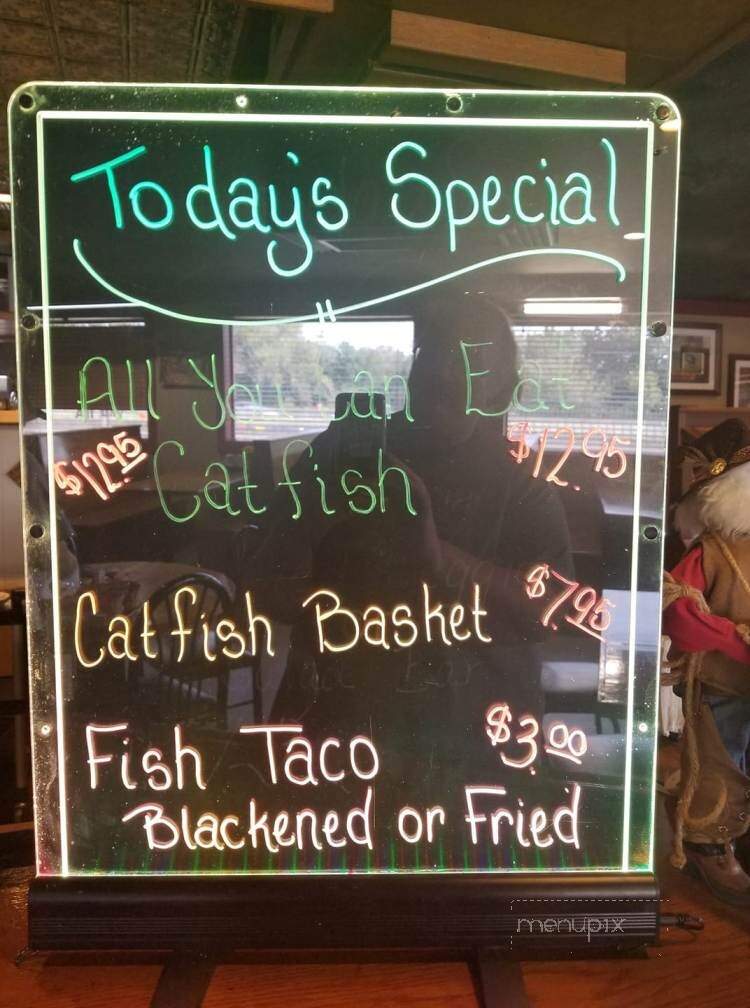 Today's Special
All You Can Eat
$12.95 Catfish $12.95
Catfish Basket $7.95
Fish Taco $3.00
Blackened or Fried
menupix